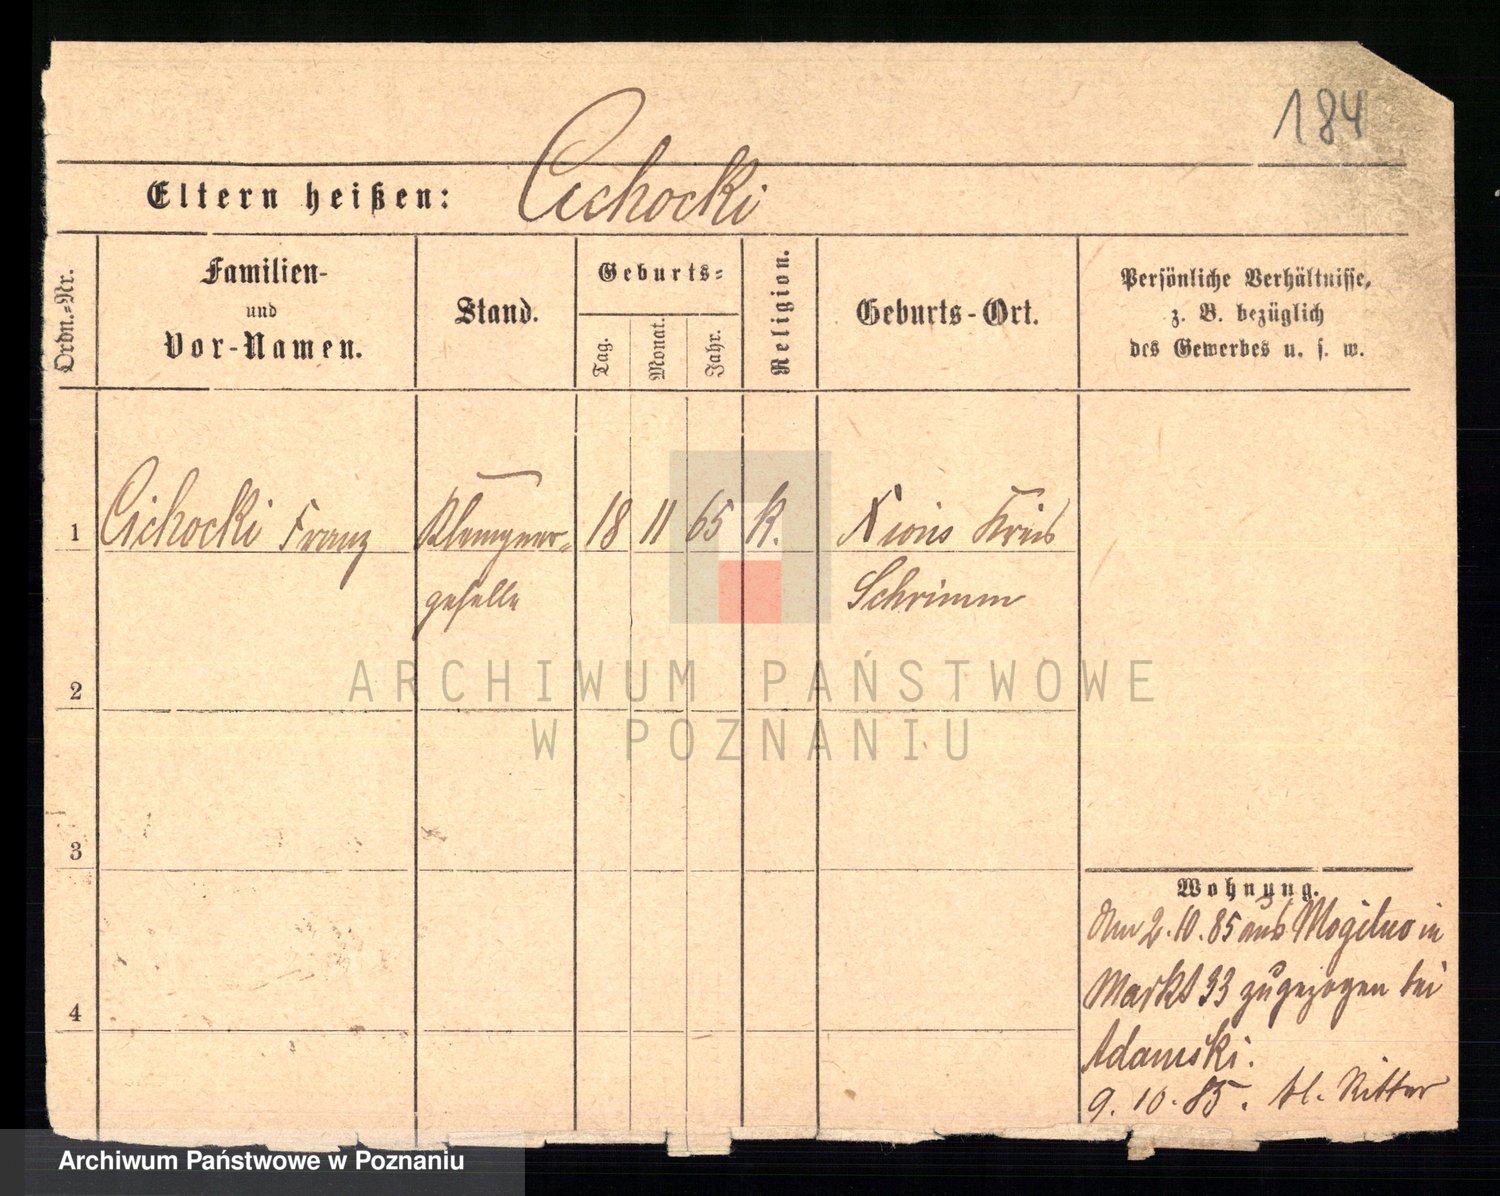 184
Eltern heißen: Cichocki
Ordn.-Nr.
Familien-
und
Vor-Namen.
Stand.
Geburts-
Tag.
Monat.
Jahr.
Religion.
Geburts-Ort.
Persönliche Verhältnisse,
z. B. bezüglich
des Gewerbes u. s. w.
1 Cichocki Franz Klempner- 18 11 65 K. Xions Kreis
geselle Schrimm
2
3
4
Wohnung.
Am 2.10.85 aus Mogilno in
Markt 33 zugezogen bei
Adamski.
9.10.85. Ritter
ARCHIWUM PAŃSTWOWE
W POZNANIU
Archiwum Państwowe w Poznaniu